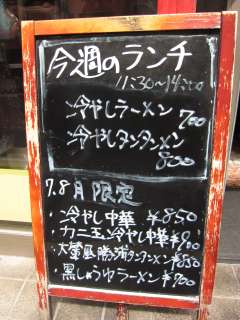 今週のランチ
11:30〜14:00
冷やしラーメン
700
冷やしタンタンメン
800
7.8月限定
・冷やし中華 ¥850
・カニ玉冷やし中華 ¥900
・大葉 勝浦タンタンメン ¥850
・黒しょうゆラーメン ¥700